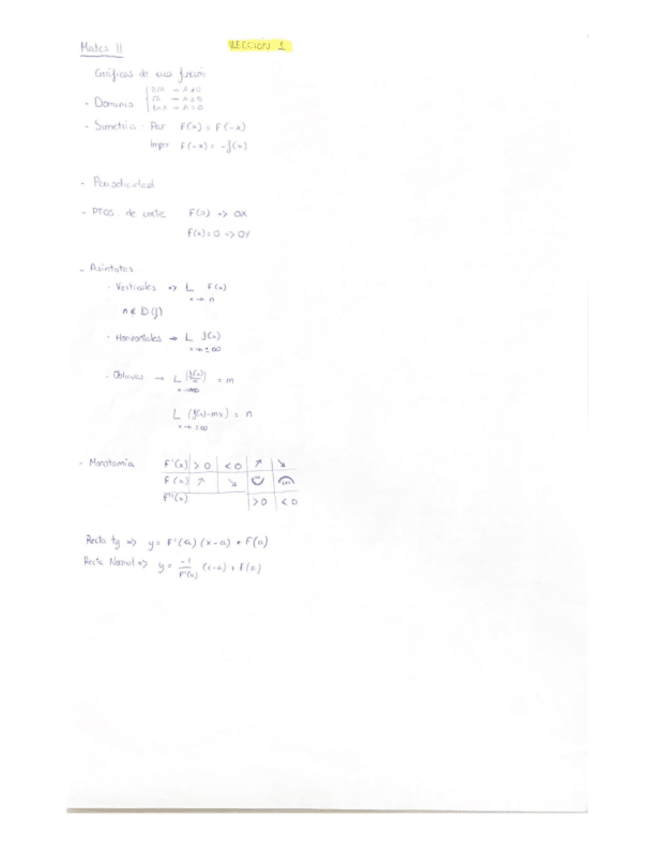 Mates II
LECCIÓN 1
Gráficas de una función
- Dominio
A ≠ 0
A ≥ 0
A > 0
- Simetria - Par F(x) = F(-x)
Impar F(-x) = -f(x)
- Periodicidad
- PTOS. de corte F(0) => OX
F(x) = 0 => OY
- Asintotas
- Verticales => L F(x)
x → n
n ∉ D(f)
- Horizontales → L f(x)
x → ±∞
- Oblicuas → L (f(x)/x) = m
L (f(x)-mx) = n
x → ±∞
- Monotomia F'(x) >0 <0 ↗ ↘
F(x) ↗ ↘ ∪ ∩
F''(x) >0 <0
Recta tg => y = F'(a) (x-a) + F(a)
Recta Normal => y = -1/F'(a) (x-a) + F(a)